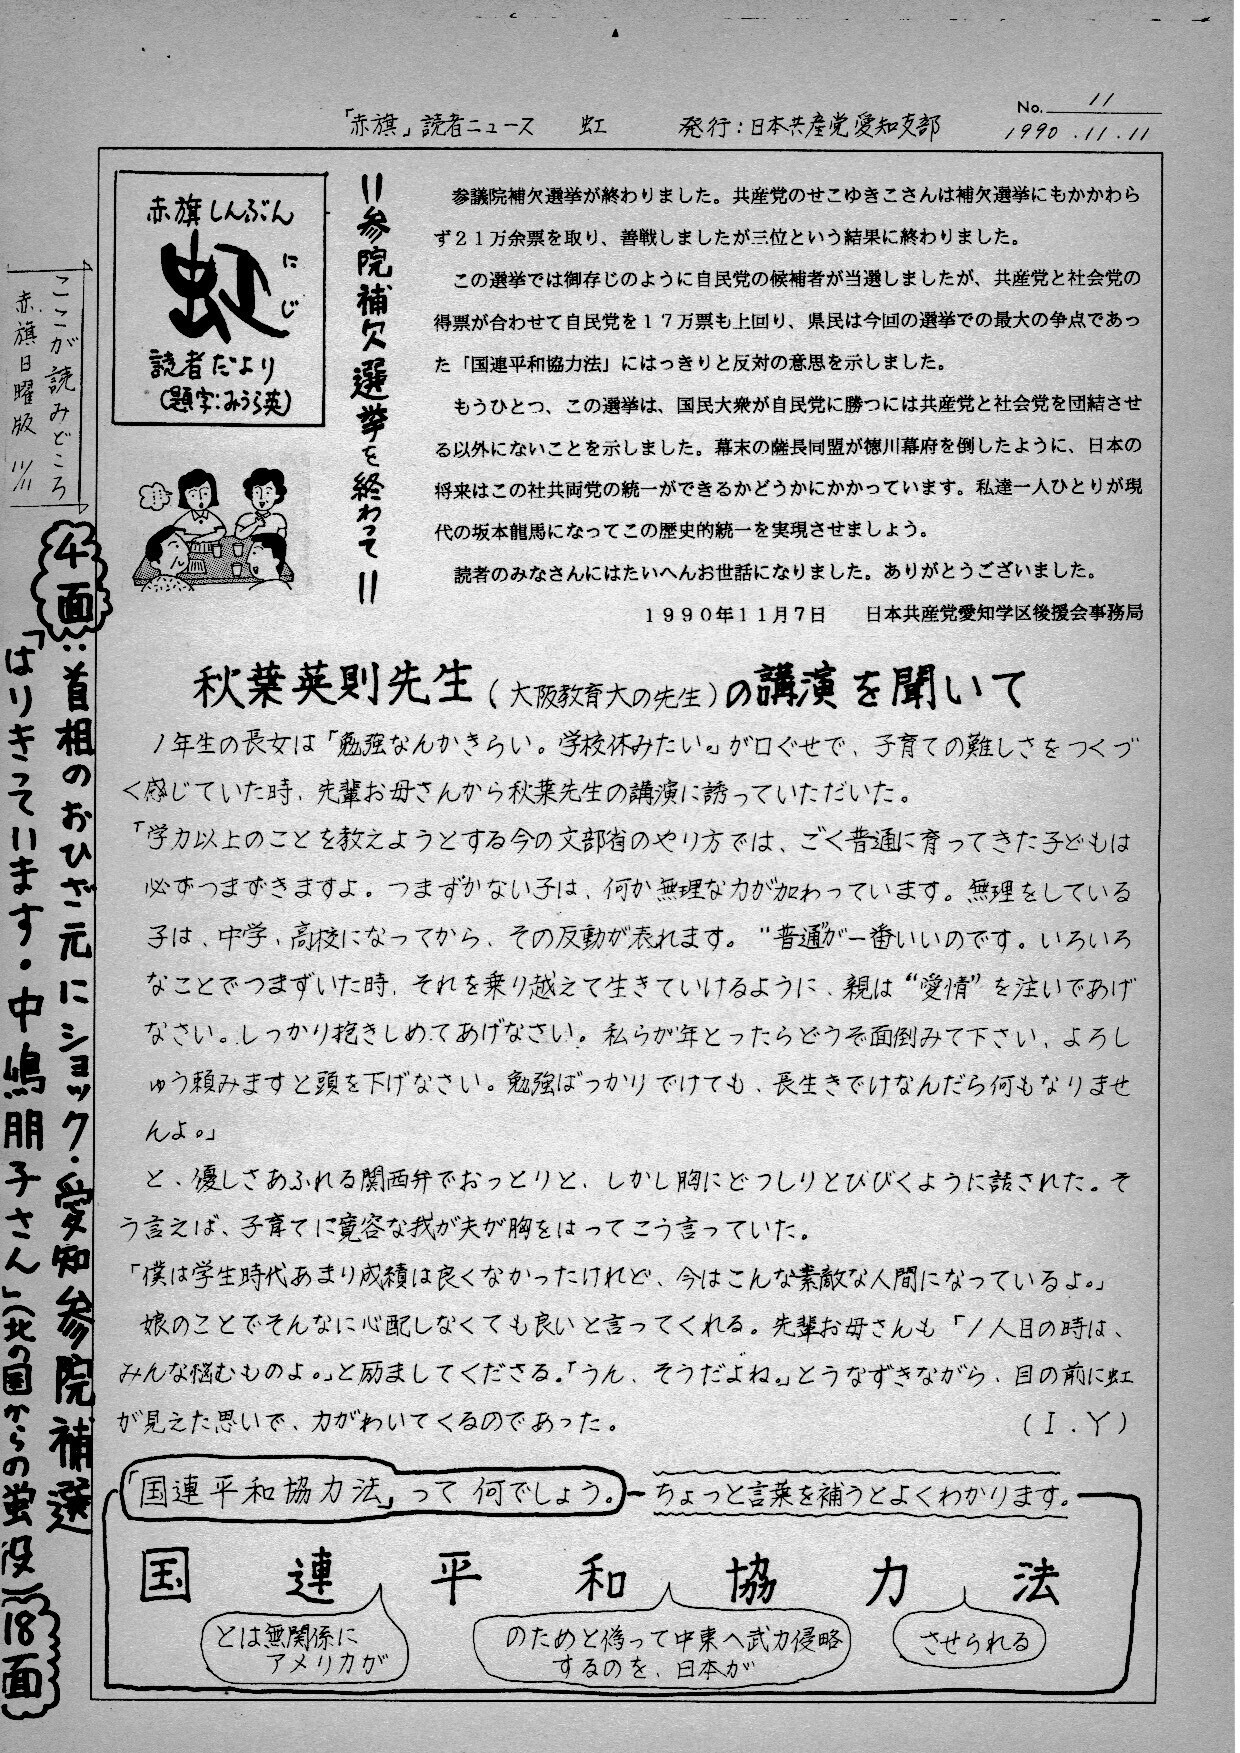 No. 11
「赤旗」読者ニュース 虹 発行：日本共産党愛知支部 1990.11.11
赤旗しんぶん
虹
にじ
読者だより
(題字:みうら英)
＝参院補欠選挙を終わって＝
参議院補欠選挙が終わりました。共産党のせこゆきこさんは補欠選挙にもかかわら
ず２１万余票を取り、善戦しましたが三位という結果に終わりました。
この選挙では御存じのように自民党の候補者が当選しましたが、共産党と社会党の
得票が合わせて自民党を１７万票も上回り、県民は今回の選挙での最大の争点であっ
た「国連平和協力法」にはっきりと反対の意思を示しました。
もうひとつ、この選挙は、国民大衆が自民党に勝つには共産党と社会党を団結させ
る以外にないことを示しました。幕末の薩長同盟が徳川幕府を倒したように、日本の
将来はこの社共両党の統一ができるかどうかにかかっています。私達一人ひとりが現
代の坂本龍馬になってこの歴史的統一を実現させましょう。
読者のみなさんにはたいへんお世話になりました。ありがとうございました。
１９９０年１１月７日 日本共産党愛知学区後援会事務局
秋葉英則先生(大阪教育大の先生)の講演を聞いて
1年生の長女は「勉強なんかきらい。学校休みたい。」が口ぐせで、子育ての難しさをつくづ
く感じていた時、先輩お母さんから秋葉先生の講演に誘っていただいた。
「学力以上のことを教えようとする今の文部省のやり方では、ごく普通に育ってきた子どもは
必ずつまずきますよ。つまずかない子は、何か無理な力が加わっています。無理をしている
子は、中学、高校になってから、その反動が表れます。“普通”が一番いいのです。いろいろ
なことでつまずいた時、それを乗り越えて生きていけるように、親は“愛情”を注いであげ
なさい。しっかり抱きしめてあげなさい。私らが年とったらどうぞ面倒みて下さい、よろし
ゅう頼みますと頭を下げなさい。勉強ばっかりでけても、長生きでけなんだら何もなりませ
んよ。」
と、優しさあふれる関西弁でおっとりと、しかし胸にどっしりとひびくように話された。そ
う言えば、子育てに寛容な我が夫が胸をはってこう言っていた。
「僕は学生時代あまり成績は良くなかったけれど、今はこんな素敵な人間になっているよ。」
娘のことでそんなに心配しなくても良いと言ってくれる。先輩お母さんも「1人目の時は、
みんな悩むものよ。」と励ましてくださる。「うん、そうだよね。」とうなずきながら、目の前に虹
が見えた思いで、力がわいてくるのであった。 (I.Y)
「国連平和協力法」って何でしょう。ちょっと言葉を補うとよくわかります。
国連平和協力法
とは無関係に
アメリカが
のためと偽って中東へ武力侵略
するのを、日本が
させられる
ここが読みどころ
赤旗日曜版 11/11
4面：首相のおひざ元にショック・愛知参院補選
「はりきっています・中嶋朋子さん」(北の国からの蛍役)18面